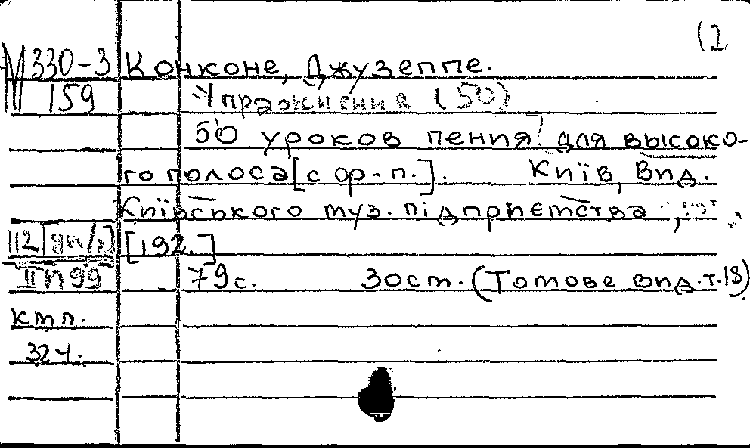 (2
М 330-3 Конконе, Джузеппе.
159 Упражнения (50)
50 уроков пения для высоко-
го голоса [с ор-п.]. Київ, Вид.
Київського муз. підприємства,
[192.]
ІІп99 79 с. 30 cm. (Тотове вид. т. 18)
кmп.
324.